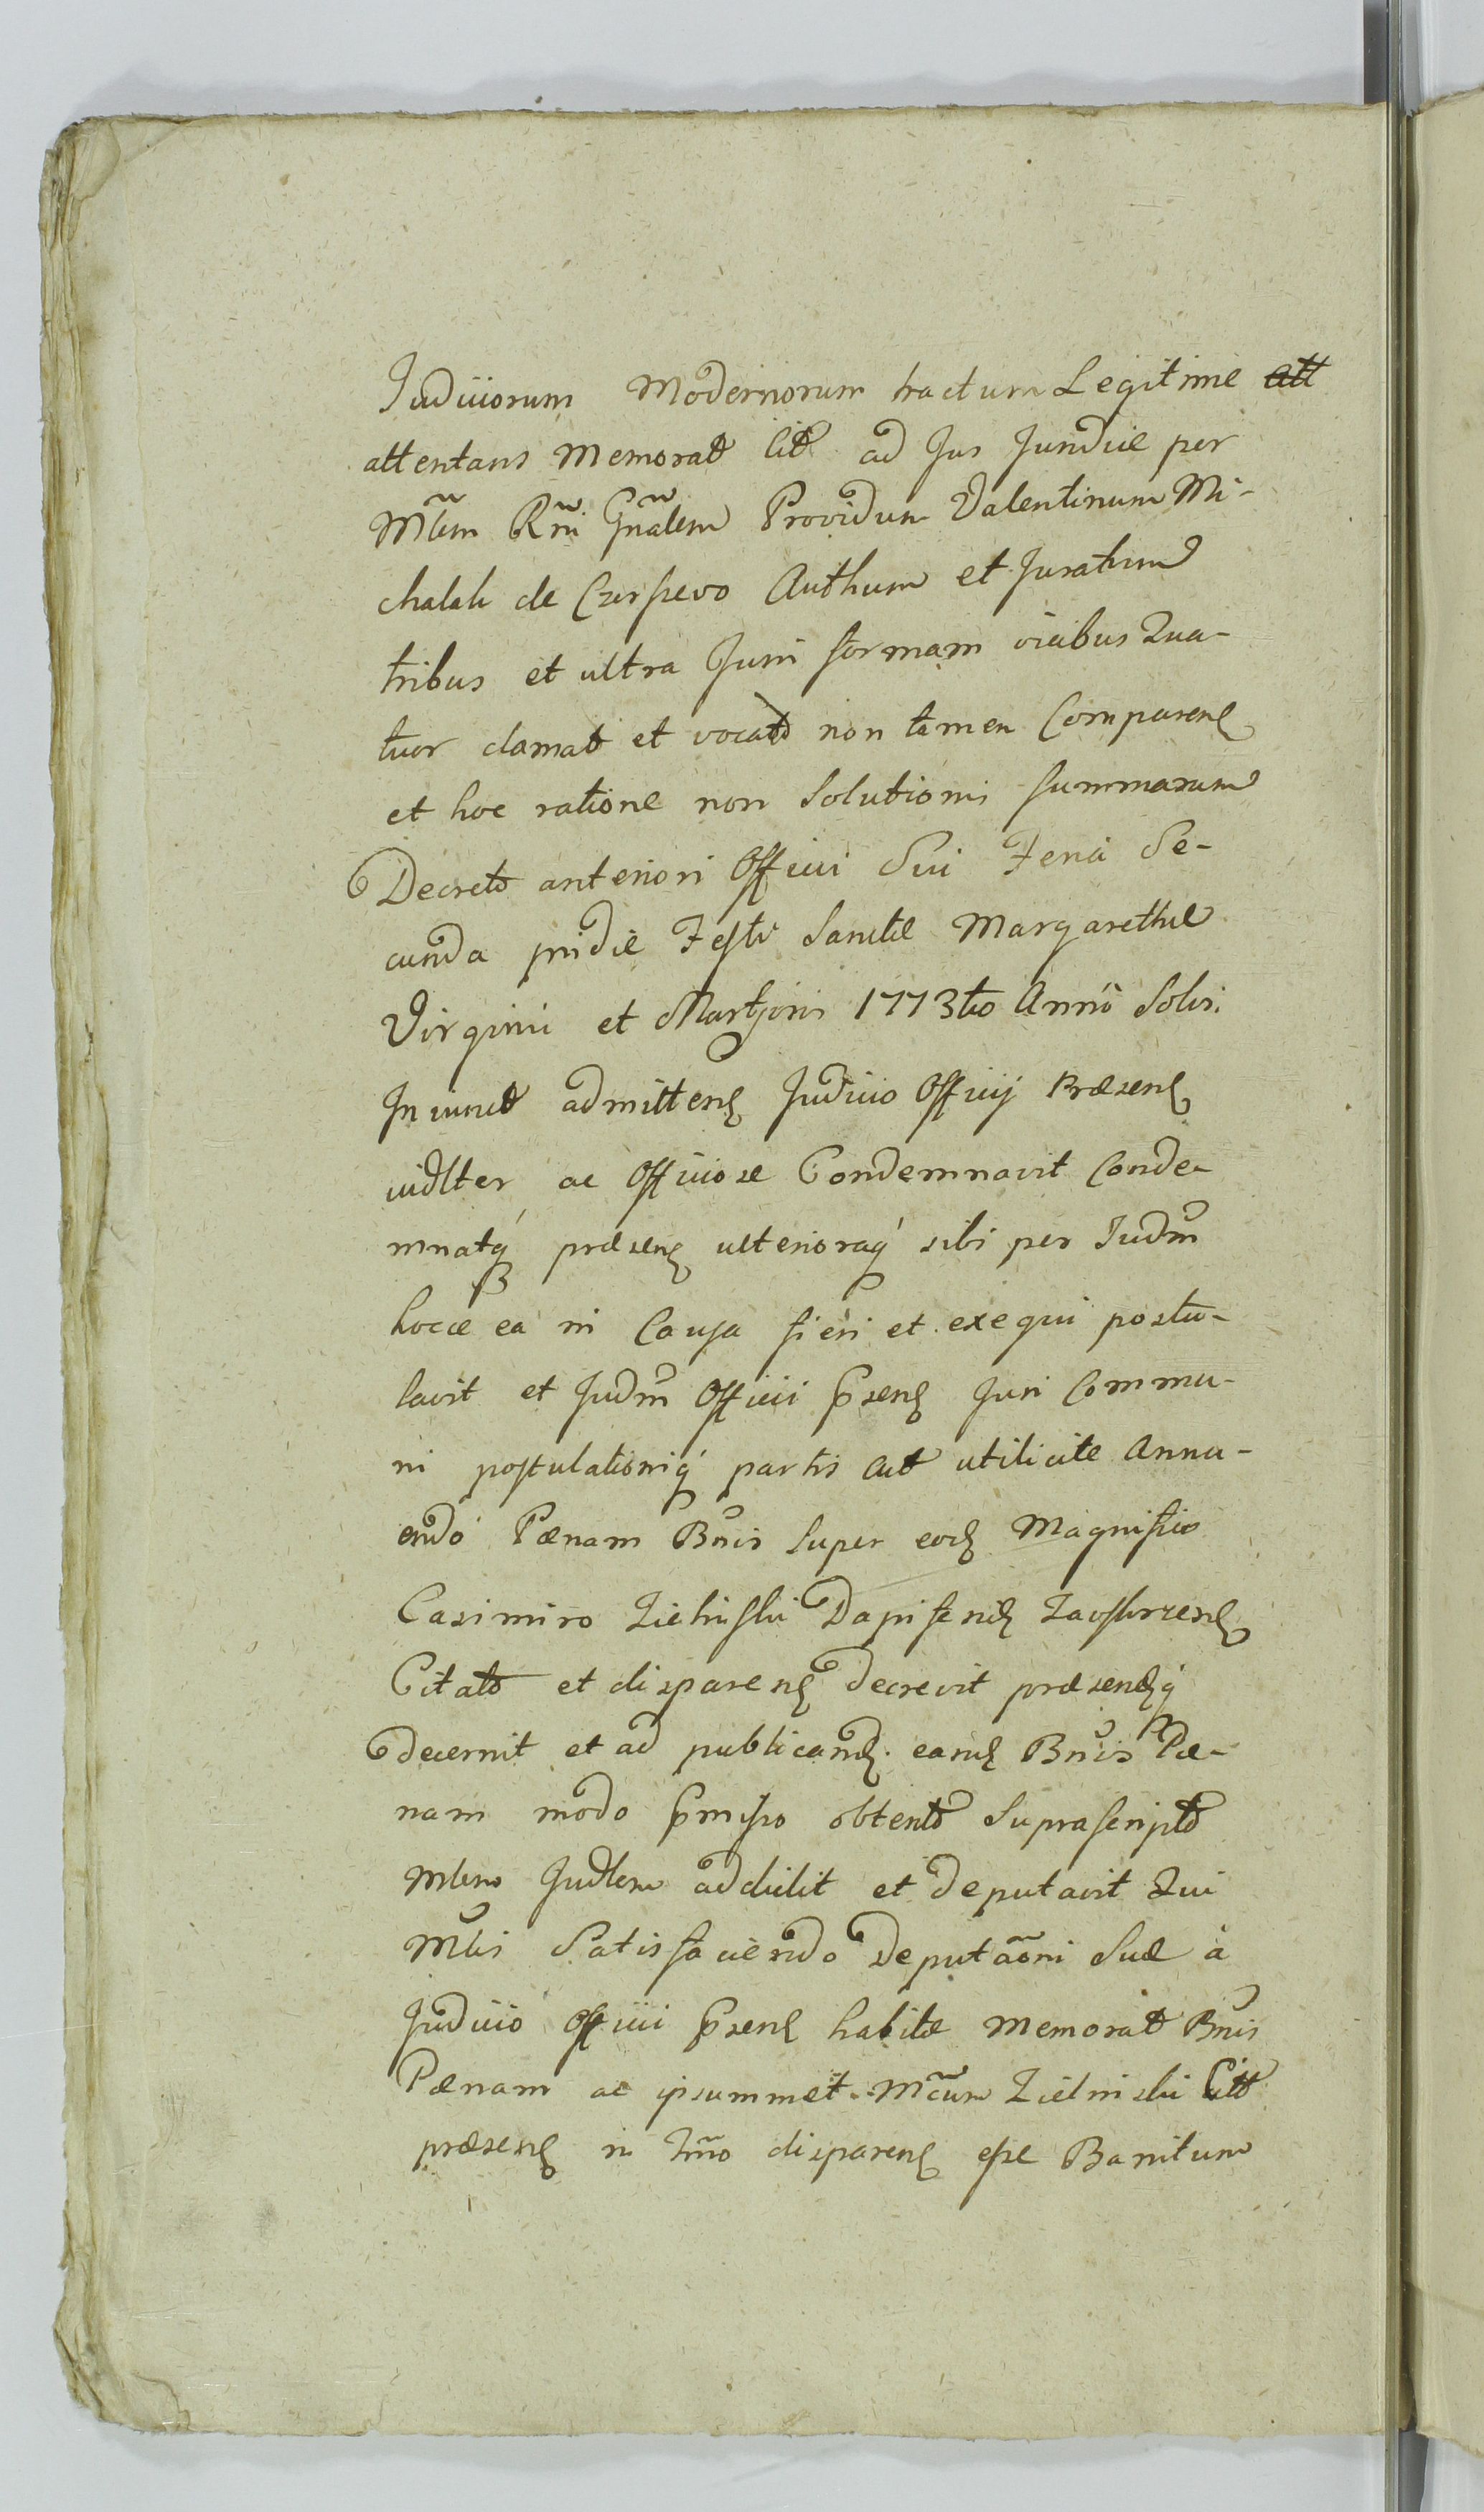 Judiciorum Modernorum tractum Legitime att
attentans Memorat Cit ad Jus Jundice per
Mlem Rni Gnalem Providum Valentinum Mi-
chalak de Czerpevo Authum et Juratum
tribus et ultra Juris formam vicibus Qua-
tuor clamat et vocato non tamen Comparen
et hoc ratione non Solutionis summarum
Decreto anteriori Officii Sui Feria Se-
cunda pridie Festi Sanctae Margarethae
Virginis et Martyris 1773tio Anno Solvi
Injunct admitten Judicio Officij Praesen
judlter ac Officiose Condemnavit Conde-
mnatq praesen ulterioraq sibi per Judm
hocce ea in Causa fieri et exequi postu-
lavit et Judm Officii Psen Juri Commu-
ni postulationiq partis Act utilicite Annu-
endo Paenam Bnis super eod Magnifico
Casimiro Zielinski Dapifer
Citato et disparen decrevit praesentq
decernit et ad publicand eand Bnis Pae-
nam modo Pmisso obtent Suprascripto
Mlem Judlem addidit et deputavit Qui
Mlis Satisfaciendo Deputaoni Suae a
Judicio Officii Psen habitae Memorat Bnis
Paenam ac ipsummet Mcum Zielinski Citt
praesen in Tmno disparen esse Banitum